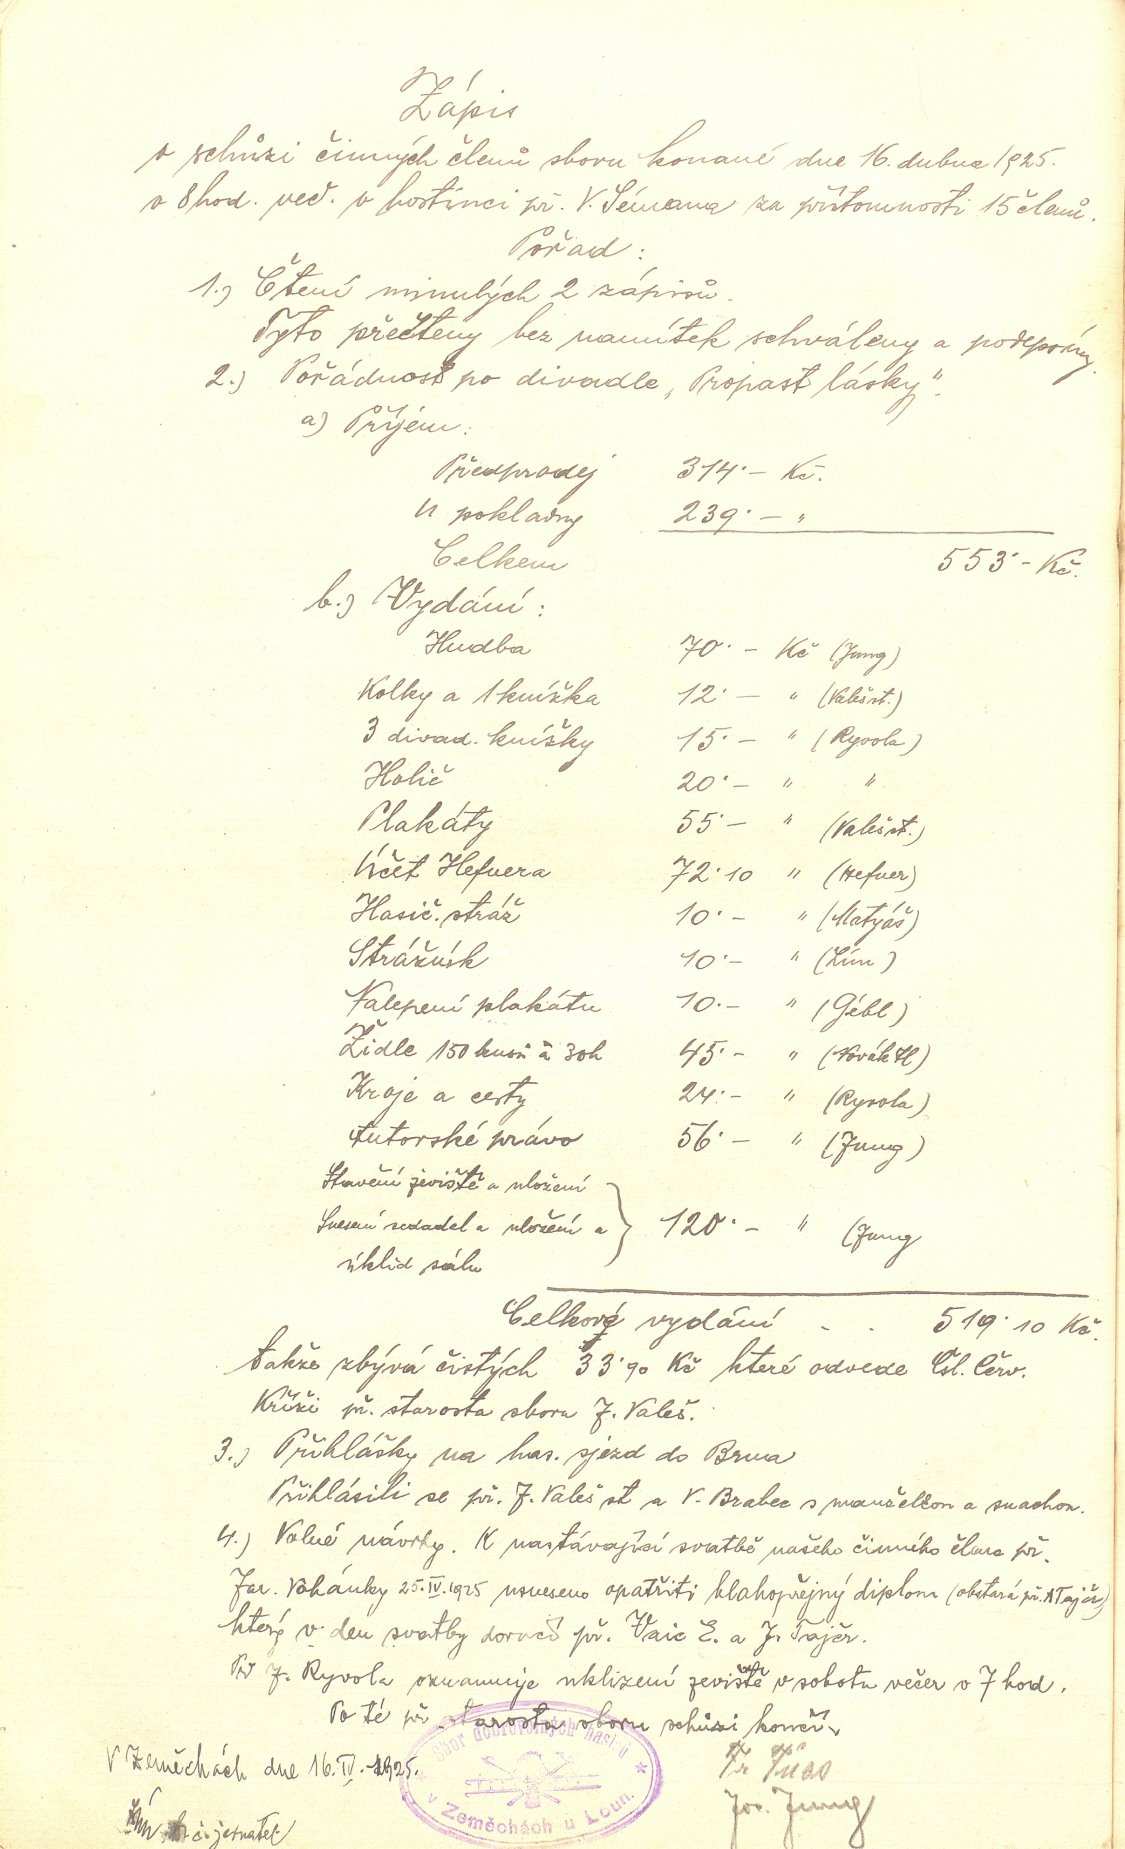 Zápis
o schůzi činných členů sboru konané dne 16. dubna 1925.
o 8 hod. več. v hostinci př. V. Sémana za přítomnosti 15 členů.
Pořad :
1.) Čtení minulých 2 zápisů.
Tyto přečteny bez namítek schváleny a podepsány.
2.) Pořádnost po divadle „Propast lásky".
a) Příjem:
Předprodej 314·– Kč.
U pokladny 239·– "
Celkem 553·– Kč.
b.) Vydání :
Hudba 70·– Kč (Jung)
Kolky a 1 knížka 12·– " (Valeš st.)
3 divad. knížky 15·– " (Ryvola)
Holič 20·– " "
Plakáty 55·– " (Valeš st.)
Účet Hefnera 72·10 " (Hefner)
Hasič. stráž 10·– " (Matyáš)
Strážník 10·– " (Lím)
Nalepení plakátu 10·– " (Gébl)
Židle 150 kusů à 30h 45·– " (Novák)
Kroje a cesty 24·– " (Ryvola)
Autorské právo 56·– " (Jung)
Stavění jeviště a uložení
Snesení sedadel a uložení a 120·– " (Jung
úklid sálu
Celkové vydání . . 519·10 Kč.
takže zbývá čistých 33·90 Kč které odvede Čsl. Červ.
Kříži př. starosta sboru J. Valeš.
3.) Přihlášky na has. sjezd do Brna
Přihlásili se př. J. Valeš st a V. Brabec s manželkou a snachou.
4.) Volné návrhy. K nastávající svatbě našeho činného člena př.
Jar. Vohánky 25.IV.1925 usneseno opatřiti blahopřejný diplom (obstará př. A Tajčr)
který v den svatby doručí př. Vaic E. a J. Tajčr.
Př J. Ryvola oznamuje uklizení jeviště v sobotu večer o 7 hod.
Po té př starosta sboru schůzi končí.
V Zeměchách dne 16.IV.-1925.
jednatel
Jos. Jung
Sbor dobrovolných hasičů
v Zeměchách u Loun.